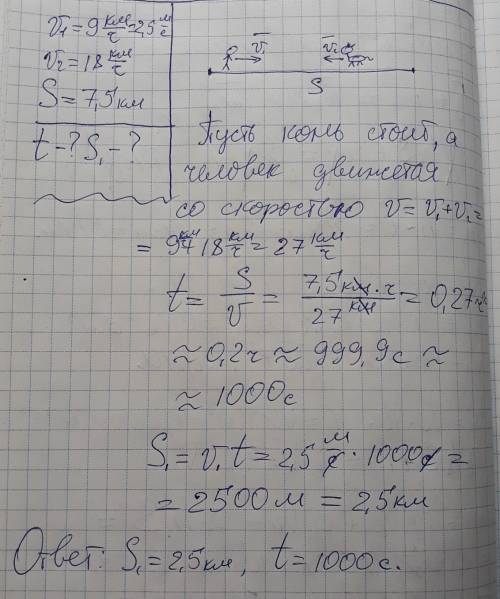 v₁ = 9 км/ч = 2,5 м/с
v₂ = 18 км/ч
S = 7,5 км
t - ? S₁ - ?
v₁ v₂
S
Пусть конь стоит, а
человек движется
со скоростью v = v₁ + v₂ =
= 9 км/ч + 18 км/ч = 27 км/ч
t = S/v = 7,5 км · ч / 27 км = 0,27 ч
≈ 0,2 ч ≈ 999,9 с ≈
≈ 1000 с
S₁ = v₁ t = 2,5 м/с · 1000 с =
= 2500 м = 2,5 км
Ответ: S₁ = 2,5 км, t = 1000 с.